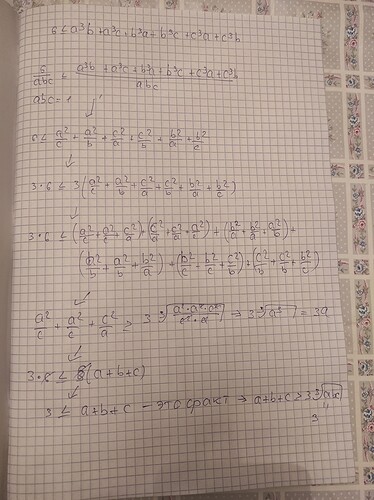 6 ≤ a³b + a³c + b³a + b³c + c³a + c³b
6/abc ≤ (a³b + a³c + b³a + b³c + c³a + c³b)/abc
abc = 1 ↓
6 ≤ a²/c + a²/b + c²/a + c²/b + b²/a + b²/c
↓
3·6 ≤ 3(a²/c + a²/b + c²/a + c²/b + b²/a + b²/c)
↓
3·6 ≤ (a²/c + a²/c + c²/a) + (c²/a + c²/a + a²/c) + (b²/a + b²/a + a²/b) +
(a²/b + a²/b + b²/a) + (b²/c + b²/c + c²/b) + (c²/b + c²/b + b²/c)
↙
a²/c + a²/c + c²/a ≥ 3 ∛(a²·a²·c²/c²·a) → 3 ∛a³ = 3a
↙
3·6 ≤ 6(a+b+c)
↙
3 ≤ a+b+c — это факт → a+b+c ≥ 3 ∛abc
3